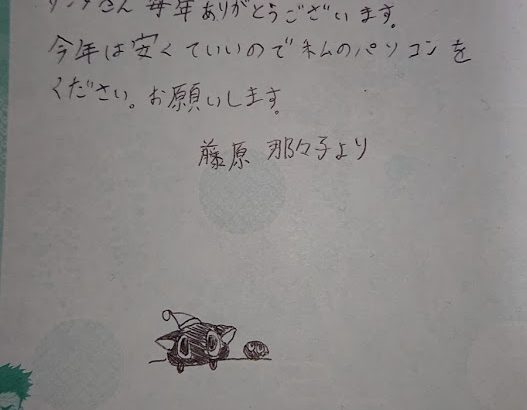 サンタさん 毎年ありがとうございます。
今年は安くていいので私のパソコンを
ください。お願いします。
藤原 那々子より